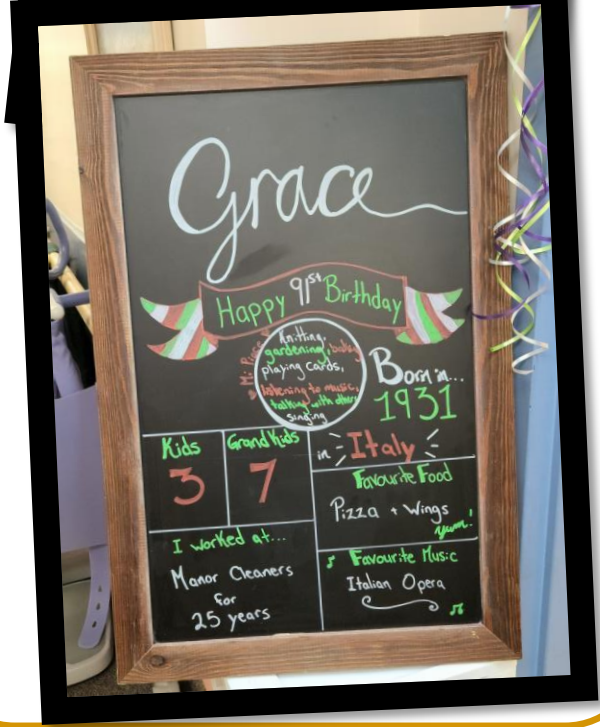 Grace
Happy 91st Birthday
Mi Piace
Knitting,
gardening, baking
playing cards,
listening to music,
talking with others
singing
Born in...
1931
in Italy
Kids
3
Grand Kids
7
Favourite Food
Pizza + Wings
yum!
I worked at...
Manor Cleaners
for
25 years
Favourite Music
Italian Opera